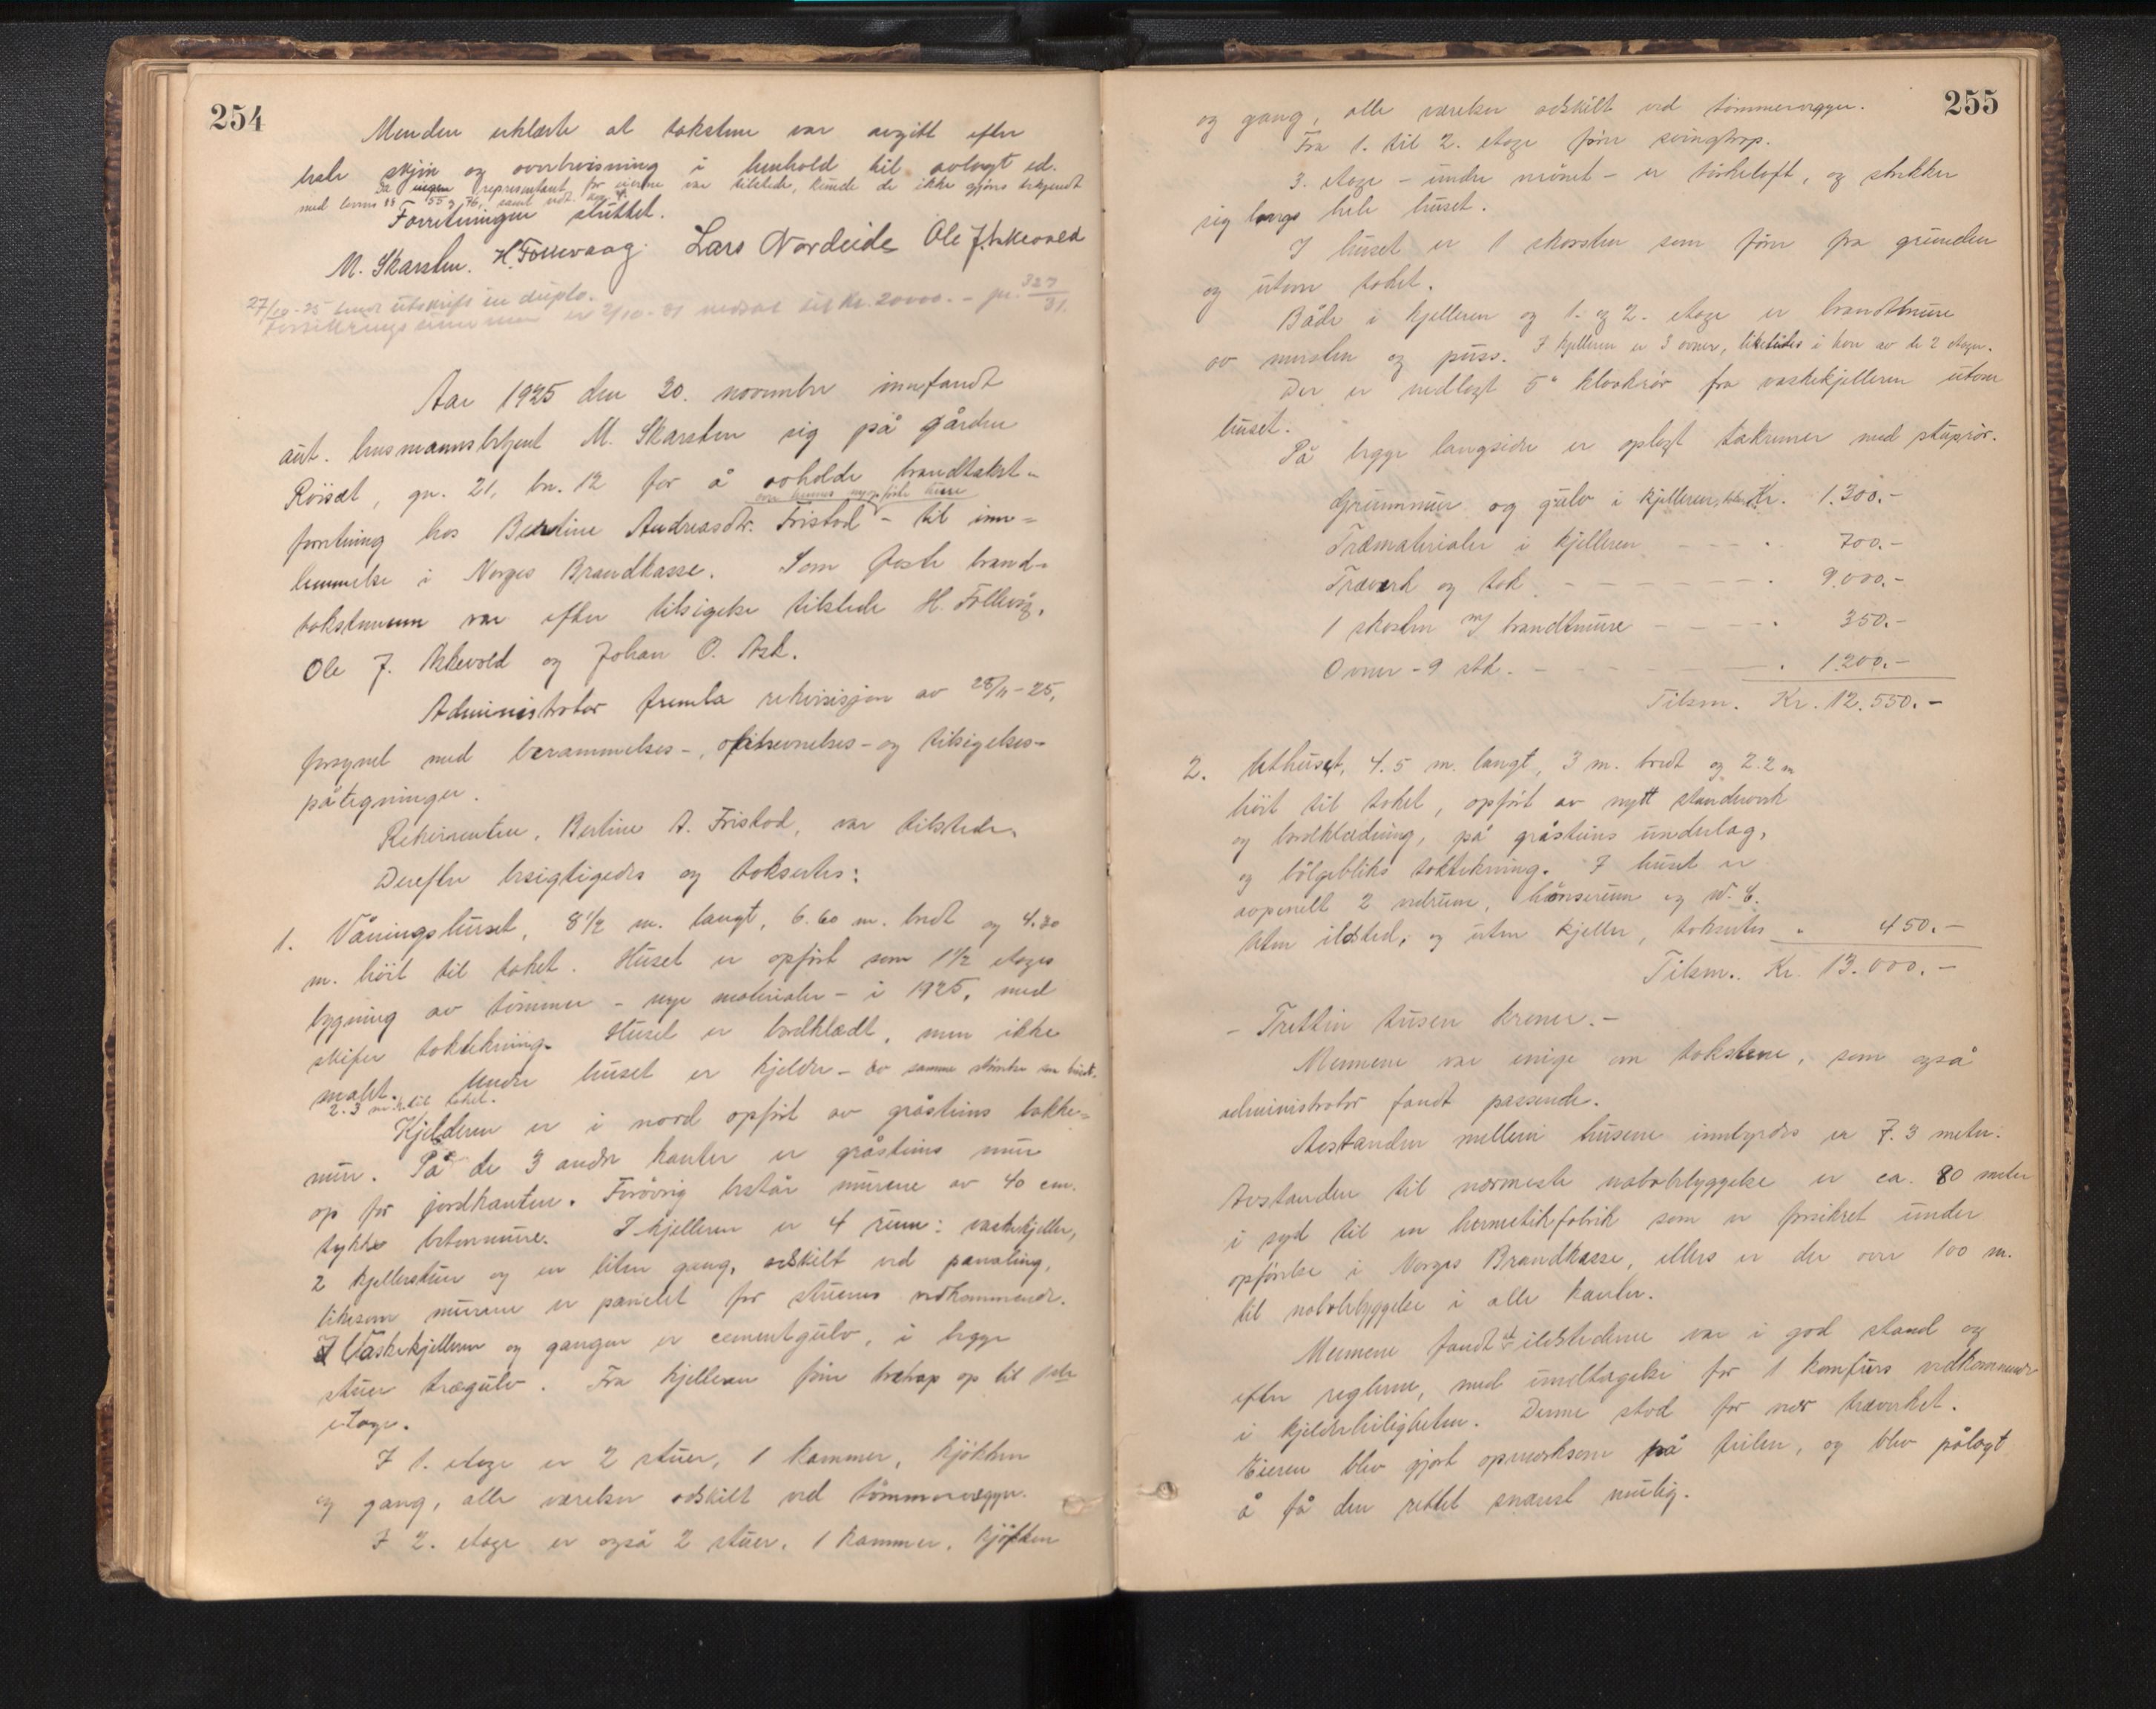 254
Menden erklærte at takstene var avgitt efter
bedste skjøn og overbevisning i henhold til avlagt ed.
Da ingen representant for eierne var tilstede, kunde de ikke gjøres bekjendt
med lovens §§ 55 og 76, samt vedt.
Forretningen sluttet.
M. Skarsten. H. Follevaag. Lars Nordeide Ole J. Askevold
27/10-25 sendt utskrift in duplo.
Forsikringssummen er 2/10-31 nedsat til Kr. 20000.- jnr. 327/31.
Aar 1925 den 30. november innfandt
aut. lensmannsbetjent M. Skarsten sig på gården
Röisæt, gn. 21, bn. 12 for å avholde brandtakst-
over hennes nyopførte huse
forretning hos Bertine Andreasdtr. Fristad - til inn-
lemmelse i Norges Brandkasse. Som faste brand-
takstmenn var efter tilsigelse tilstede H. Follevåg,
Ole J. Askevold og Johan O. Ask.
Administrator fremla rekvisisjon av 28/11-25,
forsynet med berammelses-, opnevnelses- og tilsigelses-
påtegninger.
Rekvirenten, Bertine A. Fristad, var tilstede.
Derefter besigtigedes og taksertes:
1. Våningshuset, 8 1/2 m. langt, 6.60 m. bredt og 4.30
m. höit til taket. Huset er opfört som 1 1/2 etages
bygning av tömmer - nye materialer - i 1925, med
skifer taktekning. Huset er bordklædt, men ikke
malt. Under huset er kjelder - av samme störrelse som huset.
2.3 m. h. til taket.
Kjelderen er i nord opfört av gråstens bakke-
mur. På de 3 andre kanter er gråstens mur
op for jordkanten. Forövrig består murene av 40 cm.
tykke betonmure. I kjelleren er 4 rum: vaskekjeller,
2 kjellerstuer og en liten gang, adskilt ved paneling,
likesom murene er panelet for stuenes vedkommende.
I Vaskekjelleren og gangen er cementgulv, i begge
stuer trægulv. Fra kjelleren förer tretrap op til 1ste
etage.
I 1. etage er 2 stuer, 1 kammer, kjökken
og gang, alle værelser adskilt ved tömmervegger.
I 2. etage er også 2 stuer, 1 kammer, kjökken
255
og gang, alle værelser adskilt ved tömmervegger.
Fra 1. til 2. etage förer svingtrap.
3. etage - under mönet - er törkeloft, og strekker
sig langs hele huset.
I huset er 1 skorsten som förer fra grunden
og utover taket.
Både i kjelleren og 1. og 2. etage er brandtmure
av mursten og puss. I kjelleren er 3 ovner, likeledes i hver av de 2 etager.
Der er nedlagt 5" kloakrör fra vaskekjelleren utover
huset.
På begge langsider er oplagt takrenner med stuprör.
Grunnmur og gulv i kjelleren, Kr. 1.300.-
Træmaterialer i kjelleren - - - " 700.-
Træverk og tak - - - - - - - " 9.000.-
1 skorsten m/ brandtmure - - - - " 350.-
Ovner - 9 stk. - - - - - " 1.200.-
Tilsm. Kr. 12.550.-
2. Uthuset, 4.5 m. langt, 3 m. bredt og 2.2 m
höit til taket, opfört av nytt standverk
og bordklædning, på gråstens underlag,
og bölgebliks taktekning. I huset er
avpanelt 2 vedrum, hönserum og W.C.
Uten ildsted, og uten kjeller, taksertes " 450.-
Tilsm. Kr. 13.000.-
- Tretten tusen kroner.-
Mennene var enige om takstene, som også
administrator fandt passende.
Avstanden mellem husene innbyrdes er 7.3 meter.
Avstanden til nærmeste nabobebyggelse er ca. 80 meter
i syd til en hermetikfabrik som er forsikret under
opförelse i Norges Brandkasse, ellers er der over 100 m.
til nabobebyggelse i alle kanter.
Mennene fandt at ildstederne var i god stand og
efter reglerne, med undtagelse for 1 komfurs vedkommende
i kjelderleiligheten. Denne stod for nær træverket.
Eieren blev gjort opmerksom på feilen, og blev pålagt
å få den rettet snarest mulig.